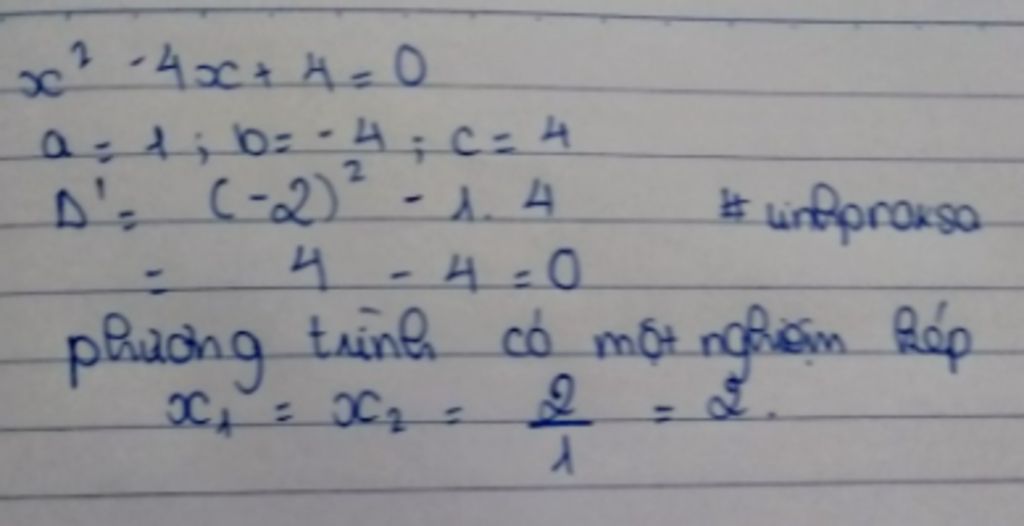 x² - 4x + 4 = 0
a = 1 ; b = - 4 ; c = 4
Δ' = (-2)² - 1. 4
= 4 - 4 = 0
phương trình có một nghiệm kép
x₁ = x₂ = 2/1 = 2.